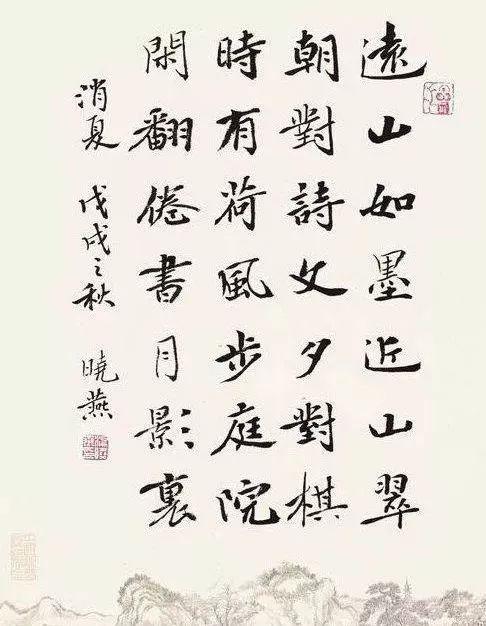 遠山如墨近山翠
朝對詩文夕對棋
時有荷風步庭院
閑翻倦書月影裏
消夏 戊戌之秋 曉燕